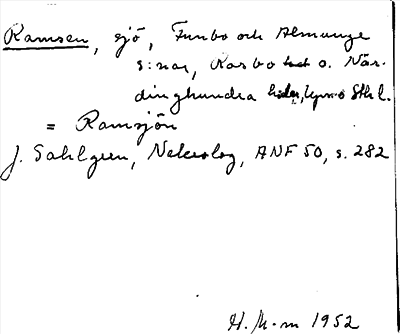 Ramsen, sjö, Funbo och Almunge
s:nar, Rasbo hd o. När-
dinghundra hdr, Upps. o Sthl.
= Ramsjön
J. Sahlgren, Nekrolog, ANF 50, s. 282
H. M-m 1952